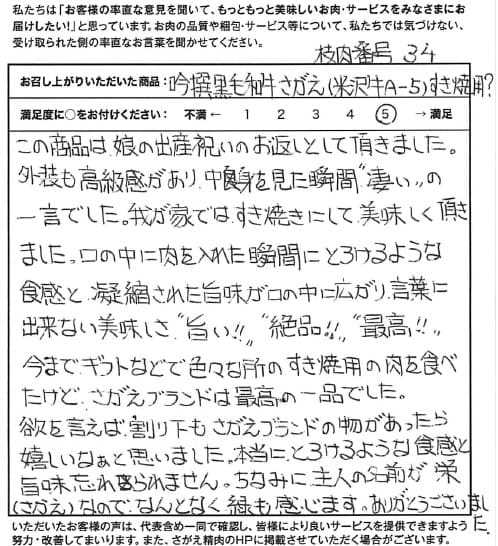 私たちは「お客様の率直な意見を聞いて、もっともっと美味しいお肉・サービスをみなさまにお
届けしたい!」と思っています。お肉の品質や梱包・サービス等について、私たちでは気づけない、
受け取られた側の率直なお言葉を聞かせてください。
枝肉番号 34
お召し上がりいただいた商品: 吟撰黒毛和牛さがえ(米沢牛A-5)すき焼用?
満足度に○をお付けください: 不満 ← 1 2 3 4 ⑤ → 満足
この商品は、娘の出産祝いのお返しとして頂きました。
外装も高級感があり、中身を見た瞬間“凄い”の
一言でした。我が家では、すき焼きにして、美味しく頂き
ました。口の中に肉を入れた瞬間にとろけるような
食感と、凝縮された旨味が口の中に広がり、言葉に
出来ない美味しさ“旨い!!”“絶品!!”“最高!!”
今まで、ギフトなどで色々な所のすき焼用の肉を食べ
たけど、さがえブランドは最高の一品でした。
欲を言えば、割り下もさがえブランドの物があったら
嬉しいなぁと思いました。本当に、とろけるような食感と
旨味、忘れられません。ちなみに、主人の名前が 栄
(さがえ)なので、なんとなく縁も感じます。ありがとうございました。
いただいたお客様の声は、代表含め一同で確認し、皆様により良いサービスを提供できますよう
努力・改善してまいります。また、さがえ精肉のHPに掲載させていただく場合がございます。